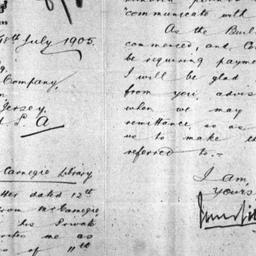 18th July 1905.
Company,
Jersey,
U. S. A
Carnegie Library
letter dated 12th
from Mr Carnegie
his Privat
me as
of 11th
communicate with
As the Buil
commenced, and Co
be requiring payme
I will be glad
from you, advis
when we may
remittance, so as
us to make th
referred to.-
I am,
yours